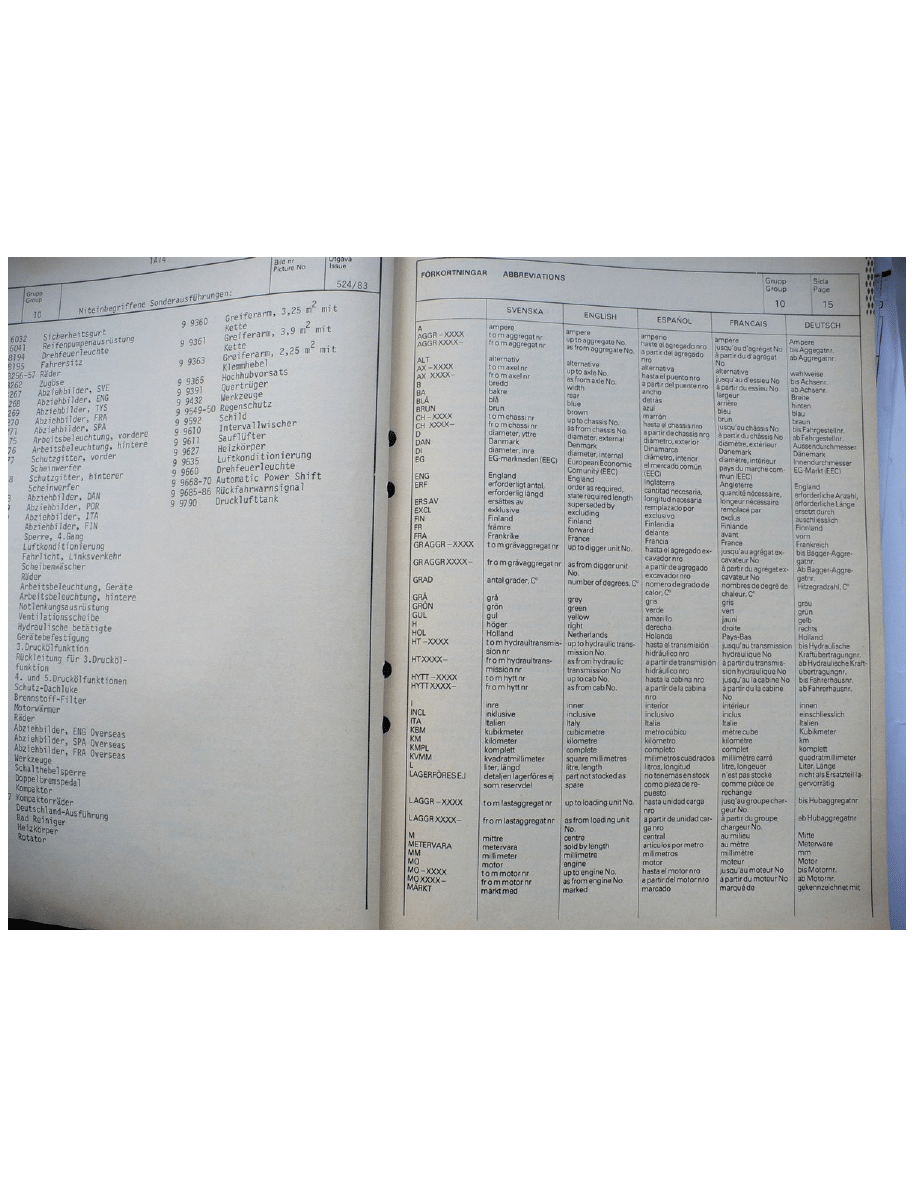 1A14
Bild nr
Picture No
Utgåva
Issue
524/83
Grupp
Group
10
Miteinbegriffene Sonderausführungen:
6032 Sicherheitsgurt
6041 Reifenpumpenausrüstung
8194 Drehfeuerleuchte
8195 Fahrersitz
8256-57 Räder
Zugöse
Abziehbilder, SVE
Abziehbilder, ENG
Abziehbilder, TYS
Abziehbilder, FRA
Abziehbilder, SPA
Arbeitsbeleuchtung, vordere
Arbeitsbeleuchtung, hintere
Schutzgitter, vorder
Scheinwerfer
Schutzgitter, hinterer
Scheinwerfer
Abziehbilder, DAN
Abziehbilder, POR
Abziehbilder, ITA
Abziehbilder, FIN
Sperre, 4.Gang
Luftkonditionierung
Fahrlicht, Linksverkehr
Scheibenwäscher
Räder
Arbeitsbeleuchtung, Geräte
Arbeitsbeleuchtung, hintere
Notlenkungsausrüstung
Ventilationsscheibe
Hydraulische betätigte
Gerätebefestigung
3.Druckölfunktion
Rückleitung für 3.Drucköl-
funktion
4. und 5.Druckölfunktionen
Schutz-Dachluke
Brennstoff-Filter
Motorwärmer
Räder
Abziehbilder, ENG Overseas
Abziehbilder, SPA Overseas
Abziehbilder, FRA Overseas
Werkzeuge
Schalthebelsperre
Doppelbremspedal
Kompaktor
Kompaktorräder
Deutschland-Ausführung
Bad Reiniger
Heizkörper
Rotator
9 9360 Greiferarm, 3,25 m2 mit
Kette
9 9361 Greiferarm, 3,9 m2 mit
Kette
9 9363 Greiferarm, 2,25 m2 mit
Klemmhebel
9 9365 Hochhubvorsats
9 9391 Querträger
9 9432 Werkzeuge
9 9549-50 Regenschutz
9 9592 Schild
9 9610 Intervallwischer
9 9611 Sauflüfter
9 9627 Heizkörper
9 9635 Luftkonditionierung
9 9660 Drehfeuerleuchte
9 9668-70 Automatic Power Shift
9 9685-86 Rückfahrwarnsignal
9 9790 Drucklufttank
FÖRKORTNINGAR ABBREVIATIONS
Grupp
Group
10
Sida
Page
15
SVENSKA ENGLISH ESPAÑOL FRANCAIS DEUTSCH
A ampere ampere amperio ampere Ampere
AGGR –XXXX t o m aggregat nr up to aggregate No. hasta el agregado nro jusqu'au d'agrégat No bis Aggegatnr.
AGGR XXXX– fr o m aggregat nr as from aggregate No. a partir del agregado nro à partir du d'agrégat No ab Aggregatnr.
ALT alternativ alternative alternativa alternative wahlweise
AX –XXXX t o m axel nr up to axle No. hasta el puento nro jusqu'au d'essieu No bis Achsenr.
AX XXXX– fr o m axel nr as from axle No. a partir del puente nro à partir du essieu No ab Achsenr.
B bredd width ancho largeur Breite
BA bakre rear detrás arrière hinten
BLÅ blå blue azul bleu blau
BRUN brun brown marrón brun braun
CH –XXXX t o m chassi nr up to chassis No. hasta el chassis nro jusqu'au châssis No bis Fahrgestellnr.
CH XXXX– fr o m chassi nr as from chassis No. a partir de chassis nro à partir du châssis No ab Fahrgestellnr.
D diameter, yttre diameter, external diámetro, exterior diamètre, extérieur Aussendurchmesser
DAN Danmark Denmark Dinamarca Danemark Dänemark
DI diameter, inre diameter, internal diámetro, interior diamètre, intérieur Innendurchmesser
EG EG-marknaden (EEC) European Economic Comunity (EEC) el mercado común (EEC) pays du marche com- mun (EEC) EG-Markt (EEC)
ENG England England Inglaterra Angleterre England
ERF erforderligt antal, erforderlig längd order as required, state required length cantitad necesaria, longitud necesaria quantité nécessaire, longeur nécessaire erforderliche Anzahl, erforderliche Länge
ERS AV ersättes av superseded by remplazado por remplacé par ersetzt durch
EXCL exklusive excluding exclusivo exclus auschliesslich
FIN Finland Finland Finlandia Finlande Finnland
FR främre forward delante avant vorn
FRA Frankrike France Francia France Frankreich
GR AGGR –XXXX t o m grävaggregat nr up to digger unit No. hasta el agregado ex- cavador nro jusqu'au agrégat ex- cavateur No bis Bagger-Aggre- gatnr.
GR AGGR XXXX– fr o m grävaggregat nr as from digger unit No. a partir de agregado excavador nro à partir du agregat ex- cavateur No Ab Bagger-Aggre- gatnr.
GRAD antal grader, C° number of degrees, C° número de grado de calor, C° nombres de degré de chaleur, C° Hitzegradzahl, C°
GRÅ grå grey gris gris grau
GRÖN grön green verde vert grün
GUL gul yellow amarillo jauni gelb
H höger right derecha droite rechts
HOL Holland Netherlands Holanda Pays-Bas Holland
HT –XXXX t o m hydraultransmis- sion nr up to hydraulic trans- mission No. hasta el transmisión hidráulico nro jusqu'au transmission hydraulique No bis Hydraulische Kraftübertragungnr.
HT XXXX– fr o m hydraultrans- mission nr as from hydraulic transmission No a partir de transmisión hidráulico nro à partir du transmis- sion hydraulique No ab Hydraulische Kraft- übertragungnr.
HYTT –XXXX t o m hytt nr up to cab No. hasta la cabina nro jusqu'au la cabine No bis Fahrerhausnr.
HYTT XXXX– fr o m hytt nr as from cab No. a partir de la cabina nro à partir du la cabine No ab Fahrerhausnr.
I inre inner interior intérieur innen
INCL inklusive inclusive inclusivo inclus einschliesslich
ITA Italien Italy Italia Italie Italien
KBM kubikmeter cubic metre metro cúbicu métre cube Kubikmeter
KM kilometer kilometre kilómetro kilométre km
KMPL komplett complete completo complet komplett
KVMM kvadratmillimeter square millimetres milimetros cuadrados millimètre carré quadratmillimeter
L liter, längd litre, length litros, longitud litre, longeuor Liter, Länge
LAGERFÖRES EJ detaljen lagerföres ej som reservdel part not stocked as spare no tenemas en stock como pieza de re- puesto n'est pas stocké comme pièce de rechange nicht als Ersatzteil la- gervorrätig
LAGGR –XXXX t o m lastaggregat nr up to loading unit No. hasta unidad carga nro jusq'au groupe char- geur No. bis Hubaggregatnr
LAGGR XXXX– fr o m lastaggregat nr as from loading unit No. a partir de unidad car- ga nro à partir du groupe chargeur No. ab Hubaggregatnr
M mittre centre central au milieu Mitte
METERVARA metervara sold by length artículos por metro au métre Meterware
MM millimeter millimetre milímetros millimétre mm
MO motor engine motor moteur Motor
MO –XXXX t o m motor nr up to engine No. hasta el motor nro jusqu'au moteur No bis Motornr.
MO XXXX– fr o m motor nr as from engine No. a partir del motor nro à partir du moteur No ab Motornr.
MÄRKT märkt med marked marcado marqué de gekennzeichnet mit